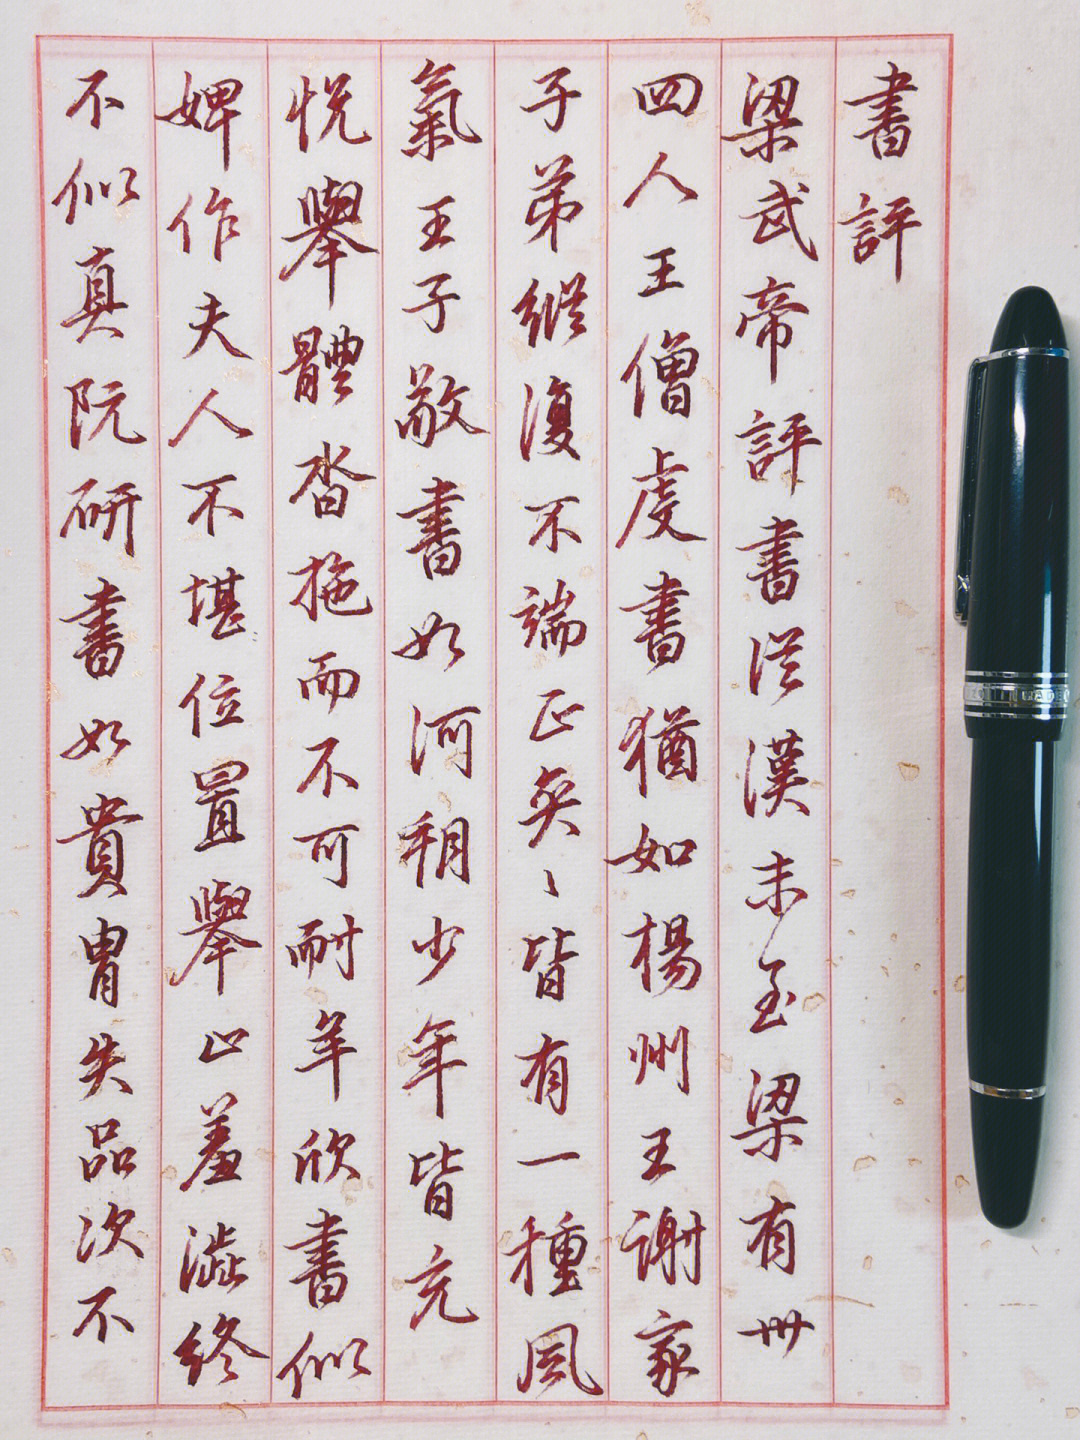 書評
梁武帝評書從漢末至梁有卌
四人王僧虔書猶如楊州王謝家
子弟縱復不端正奕〻皆有一種風
氣王子敬書如河朔少年皆充
悅舉體沓拖而不可耐羊欣書似
婢作夫人不堪位置舉止羞澁終
不似真阮研書如貴胄失品次不